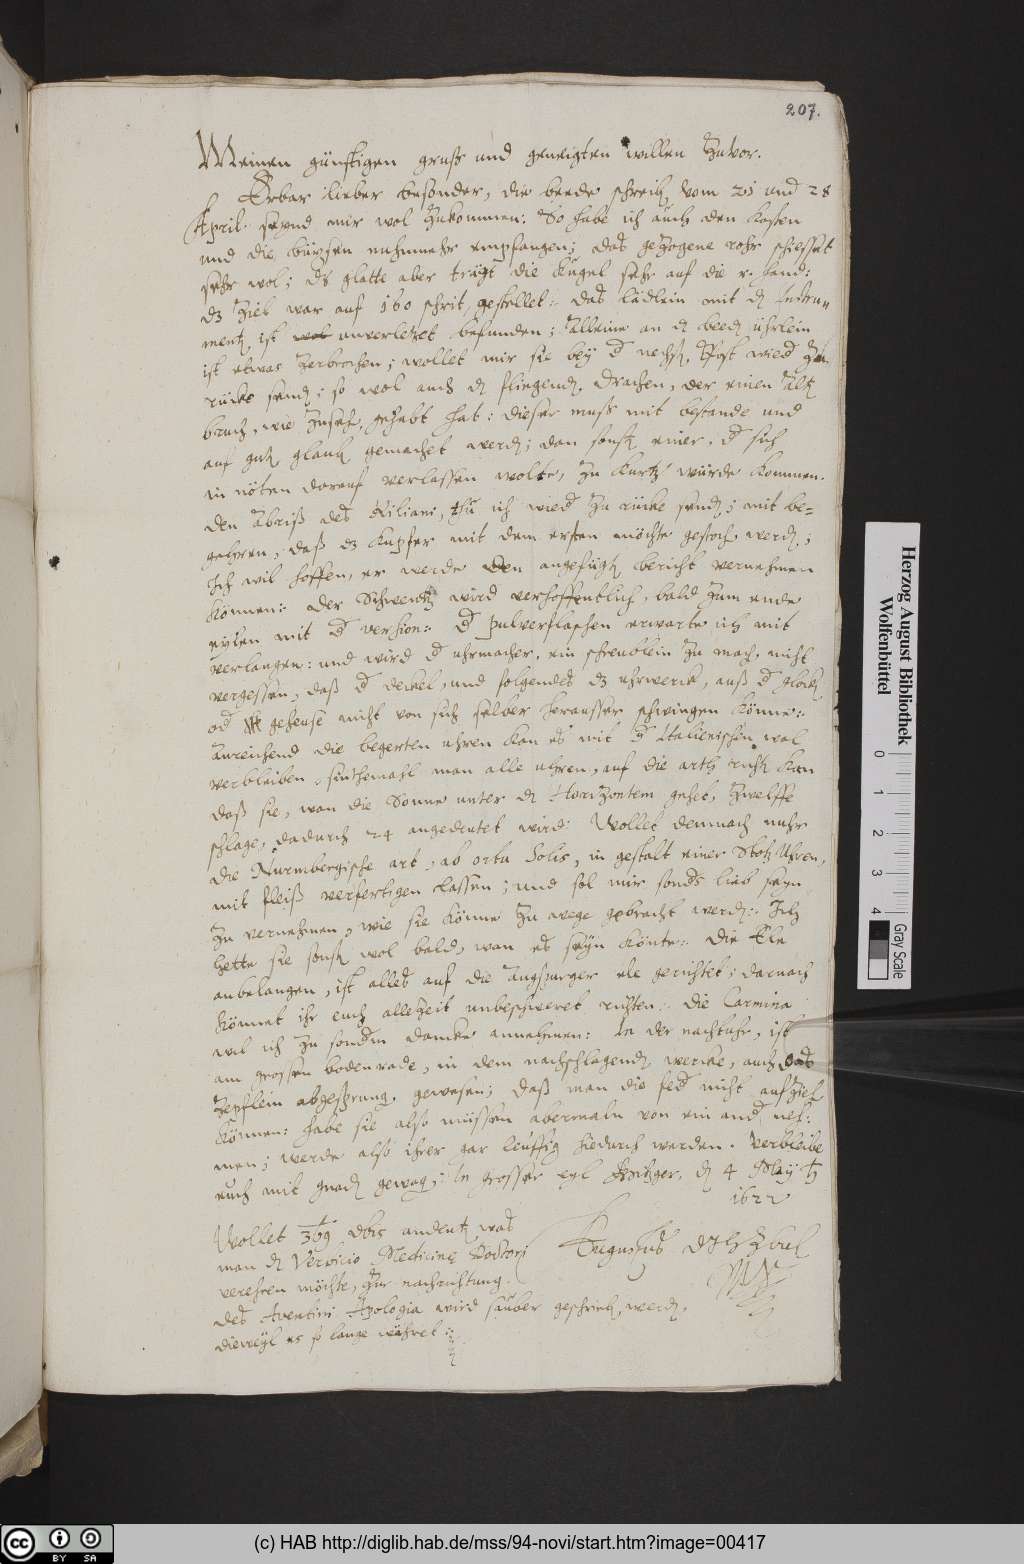 207.
Meinen günstigen gruß und geneigten willen zuvor.
Erbar lieber besonder, die beede schreib. vom 21 und 28
April. seynd mir wol zukommen: So habe ich auch den kasten
und die büxsen nuhnmehr empfangen; das gezogene rohr schiesset
sehr wol; ds glatte aber trägt die Kugel sehr auf die r. hand:
dz ziel war auf 160 schrit, gestellet:. das lädlein mit d. Instru-
ment. ist wol unverletzet befunden; Alleine an d. beed. uhrlein
ist etwas zerbrochen; wollet mir sie bey d nechst. Post wied zu-
rücke send.; so wol auch d. fliegend. drachen, der einen
bruch, wie zusehe, gehabt hat: dieser muss mit bestande und
auf gut. glaub. gemachet werd.; dan sonst einer, d sich
in nöten darauf verlassen wolte, zu kurtz würde kommen.
den abriß des Kiliani, thu ich wied zu rücke send.; mit be-
gehren, daß dz kupfer mit dem ersten möchte gestoch. werd.;
Ich wil hoffen, er werde den angefügt. bericht vernehmen
können:. der Schwendtz. wird verhoffentlich, bald zum ende
eylen mit d version:. d pulverflaschen erwarte ich mit
verlangen: und wird d uhrmacher, ein schreublein zu mach. nicht
vergessen, daß d deckel, und folgendes dz uhrwerck, auß d glock.
od geheuse nicht von sich selber heraußer schwingen könne:.
Anreichend die begerten uhren kan es mit d Italienischen wol
verbleiben, sinthemahl man alle uhren, auf die arth richt. kan
daß sie, wan die Sonne unter d. Horizontem gehet, zwelffe
schlage, dadurch 24 angedeutet wird: Wollet demnach nuhr
die Nürmbergische art, ab ortu Solis, in gestalt einer Stotz Uhren,
mit fleiß verfertigen lassen; und sol mir sonds lieb seyn
zu vernehmen, wie sie könne zu wege gebracht werd.:. Ich
hette sie sonst wol bald, wan es seyn könte:. die Ele
anbelangen, ist alles auf die augspurger ele gerichtet; darnach
könnet ihr euch allezeit unbeschweret richten:. die Carmina
wil ich zu sondm dancke annehmen: In der nachtuhr, ist
am grossen bodenrade, in dem nachschlagend. wercke, auch das
zepflein abgesprung. gewesen; daß man die fed nicht aufzieh
können: habe sie also müssen abermaln von ein and neh-
men; werde also ihrer gar leuffig hiedurch werden. Verbleibe
euch mit gnad. gewog.: In grosser eyl Hitzger. d. 4 May
1622
Wollet 369 dbis andeut. was
man d. Vervicio Medicinę Doctori
verehren möchte, zur nachrichtung.
Augustus DJh z B u L
des Aventini Apologia wird sauber geschrieb. werd.
dieweyl es so lange währet:
Herzog August Bibliothek
Wolfenbüttel
0 1 2 3 4
Gray Scale
cc BY SA
(c) HAB http://diglib.hab.de/mss/94-novi/start.htm?image=00417